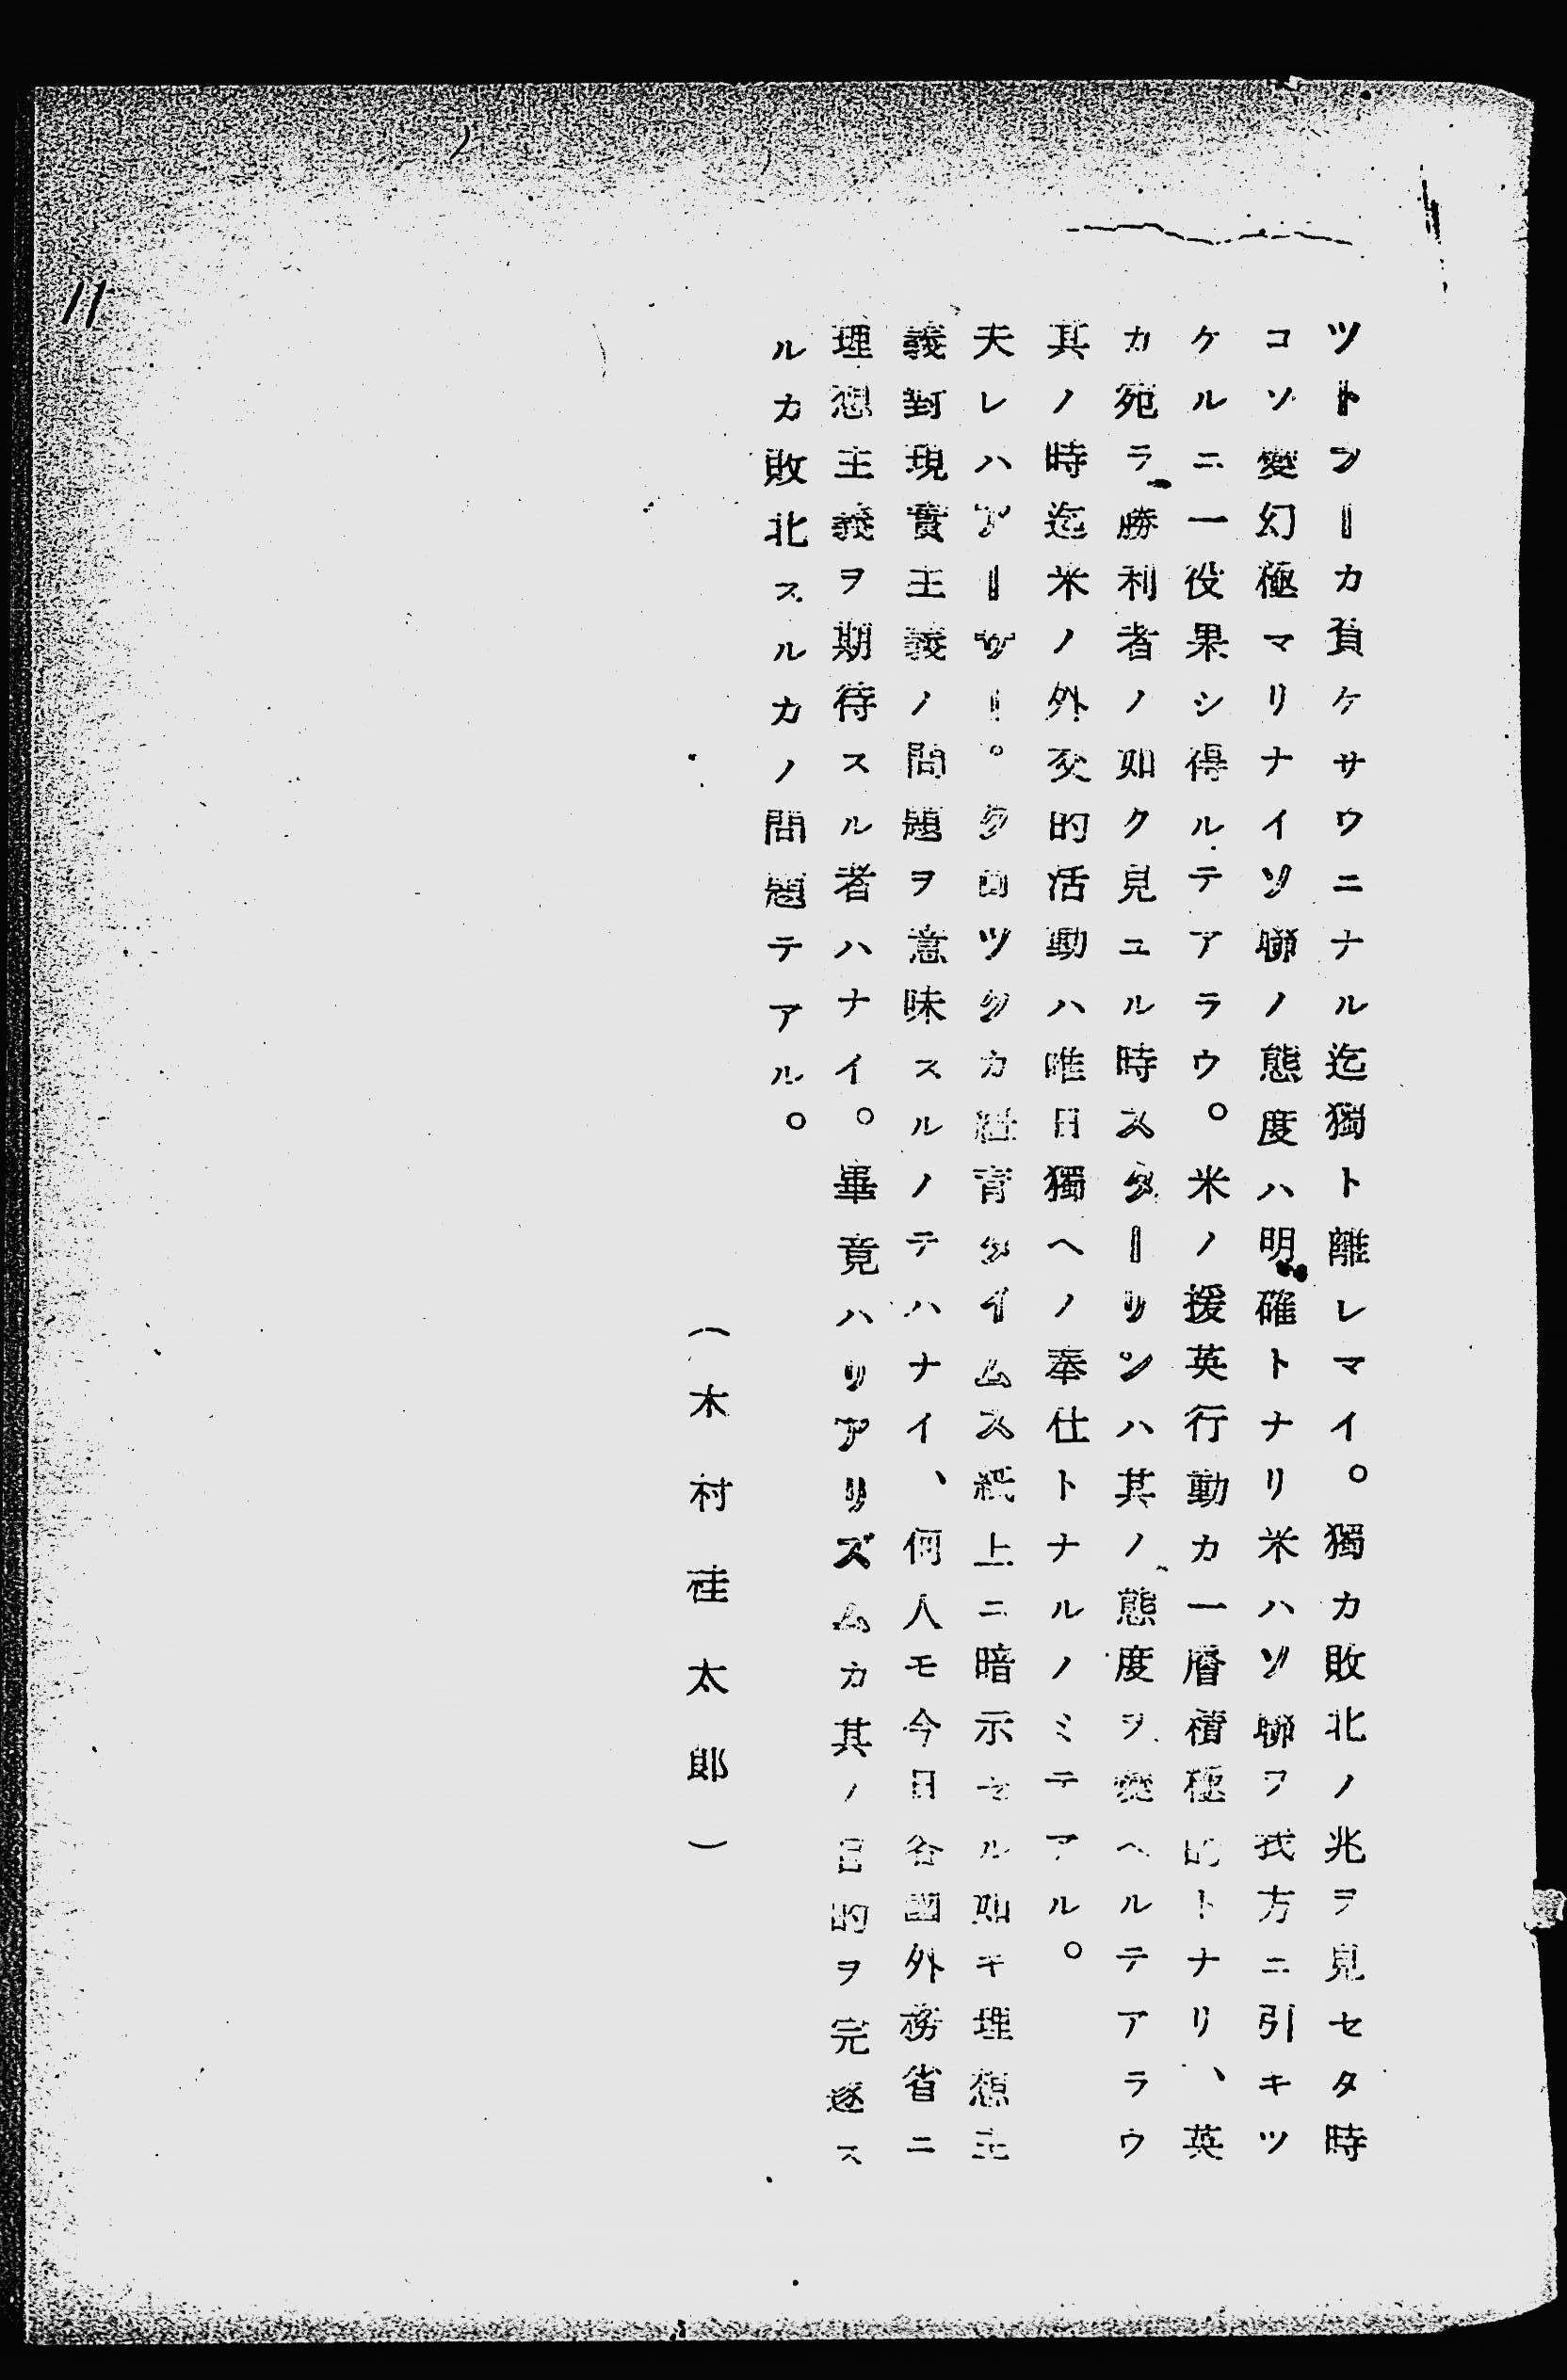 ツトラーカ負ケサウニナル迄獨ト離レマイ。獨カ敗北ノ兆ヲ見セタ時
コソ變幻極マリナイソ聯ノ態度ハ明確トナリ米ハソ聯ヲ我方ニ引キツ
ケルニ一役果シ得ルテアラウ。米ノ援英行動カ一層積極的トナリ、英
カ宛ラ勝利者ノ如ク見ユル時スターリンハ其ノ態度ヲ變ヘルテアラウ
其ノ時迄米ノ外交的活動ハ唯日獨ヘノ奉仕トナルノミテアル。
夫レハアーサー。クロツクカ紐育タイムス紙上ニ暗示セル如キ理想主
義對現實主義ノ問題ヲ意味スルノテハナイ、何人モ今日各國外務省ニ
理想主義ヲ期待スル者ハナイ。畢竟ハリアリズムカ其ノ目的ヲ完遂ス
ルカ敗北スルカノ問題テアル。
（木村硅太郎）
11